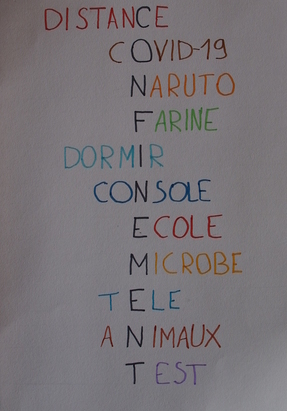 DISTANCE
COVID-19
NARUTO
FARINE
DORMIR
CONSOLE
ECOLE
MICROBE
TELE
ANIMAUX
TEST